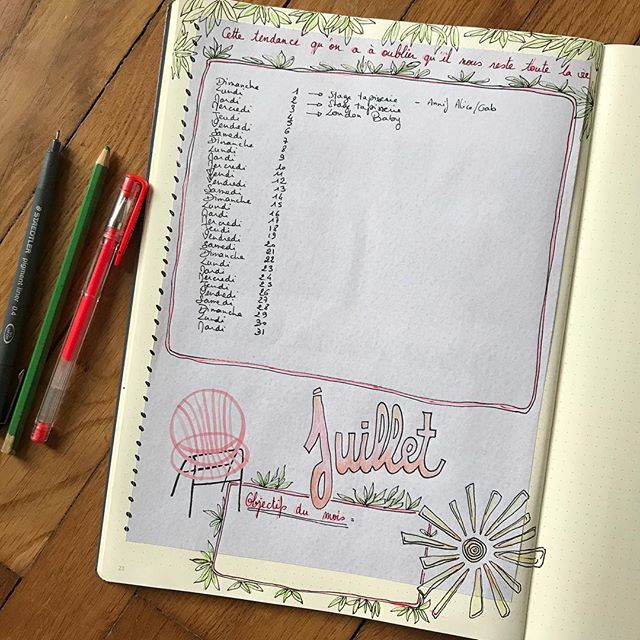 Cette tendance qu'on a à oublier qu'il nous reste toute la vie
Dimanche 1 → Stage tapisserie - Anniv Alice/Gab
Lundi 2 → Stage tapisserie
Mardi 3 → London Baby
Mercredi 4
Jeudi 5
Vendredi 6
Samedi 7
Dimanche 8
Lundi 9
Mardi 10
Mercredi 11
Jeudi 12
Vendredi 13
Samedi 14
Dimanche 15
Lundi 16
Mardi 17
Mercredi 18
Jeudi 19
Vendredi 20
Samedi 21
Dimanche 22
Lundi 23
Mardi 24
Mercredi 25
Jeudi 26
Vendredi 27
Samedi 28
Dimanche 29
Lundi 30
Mardi 31
Juillet
Objectifs du mois :
23
STAEDTLER pigment liner 0.4